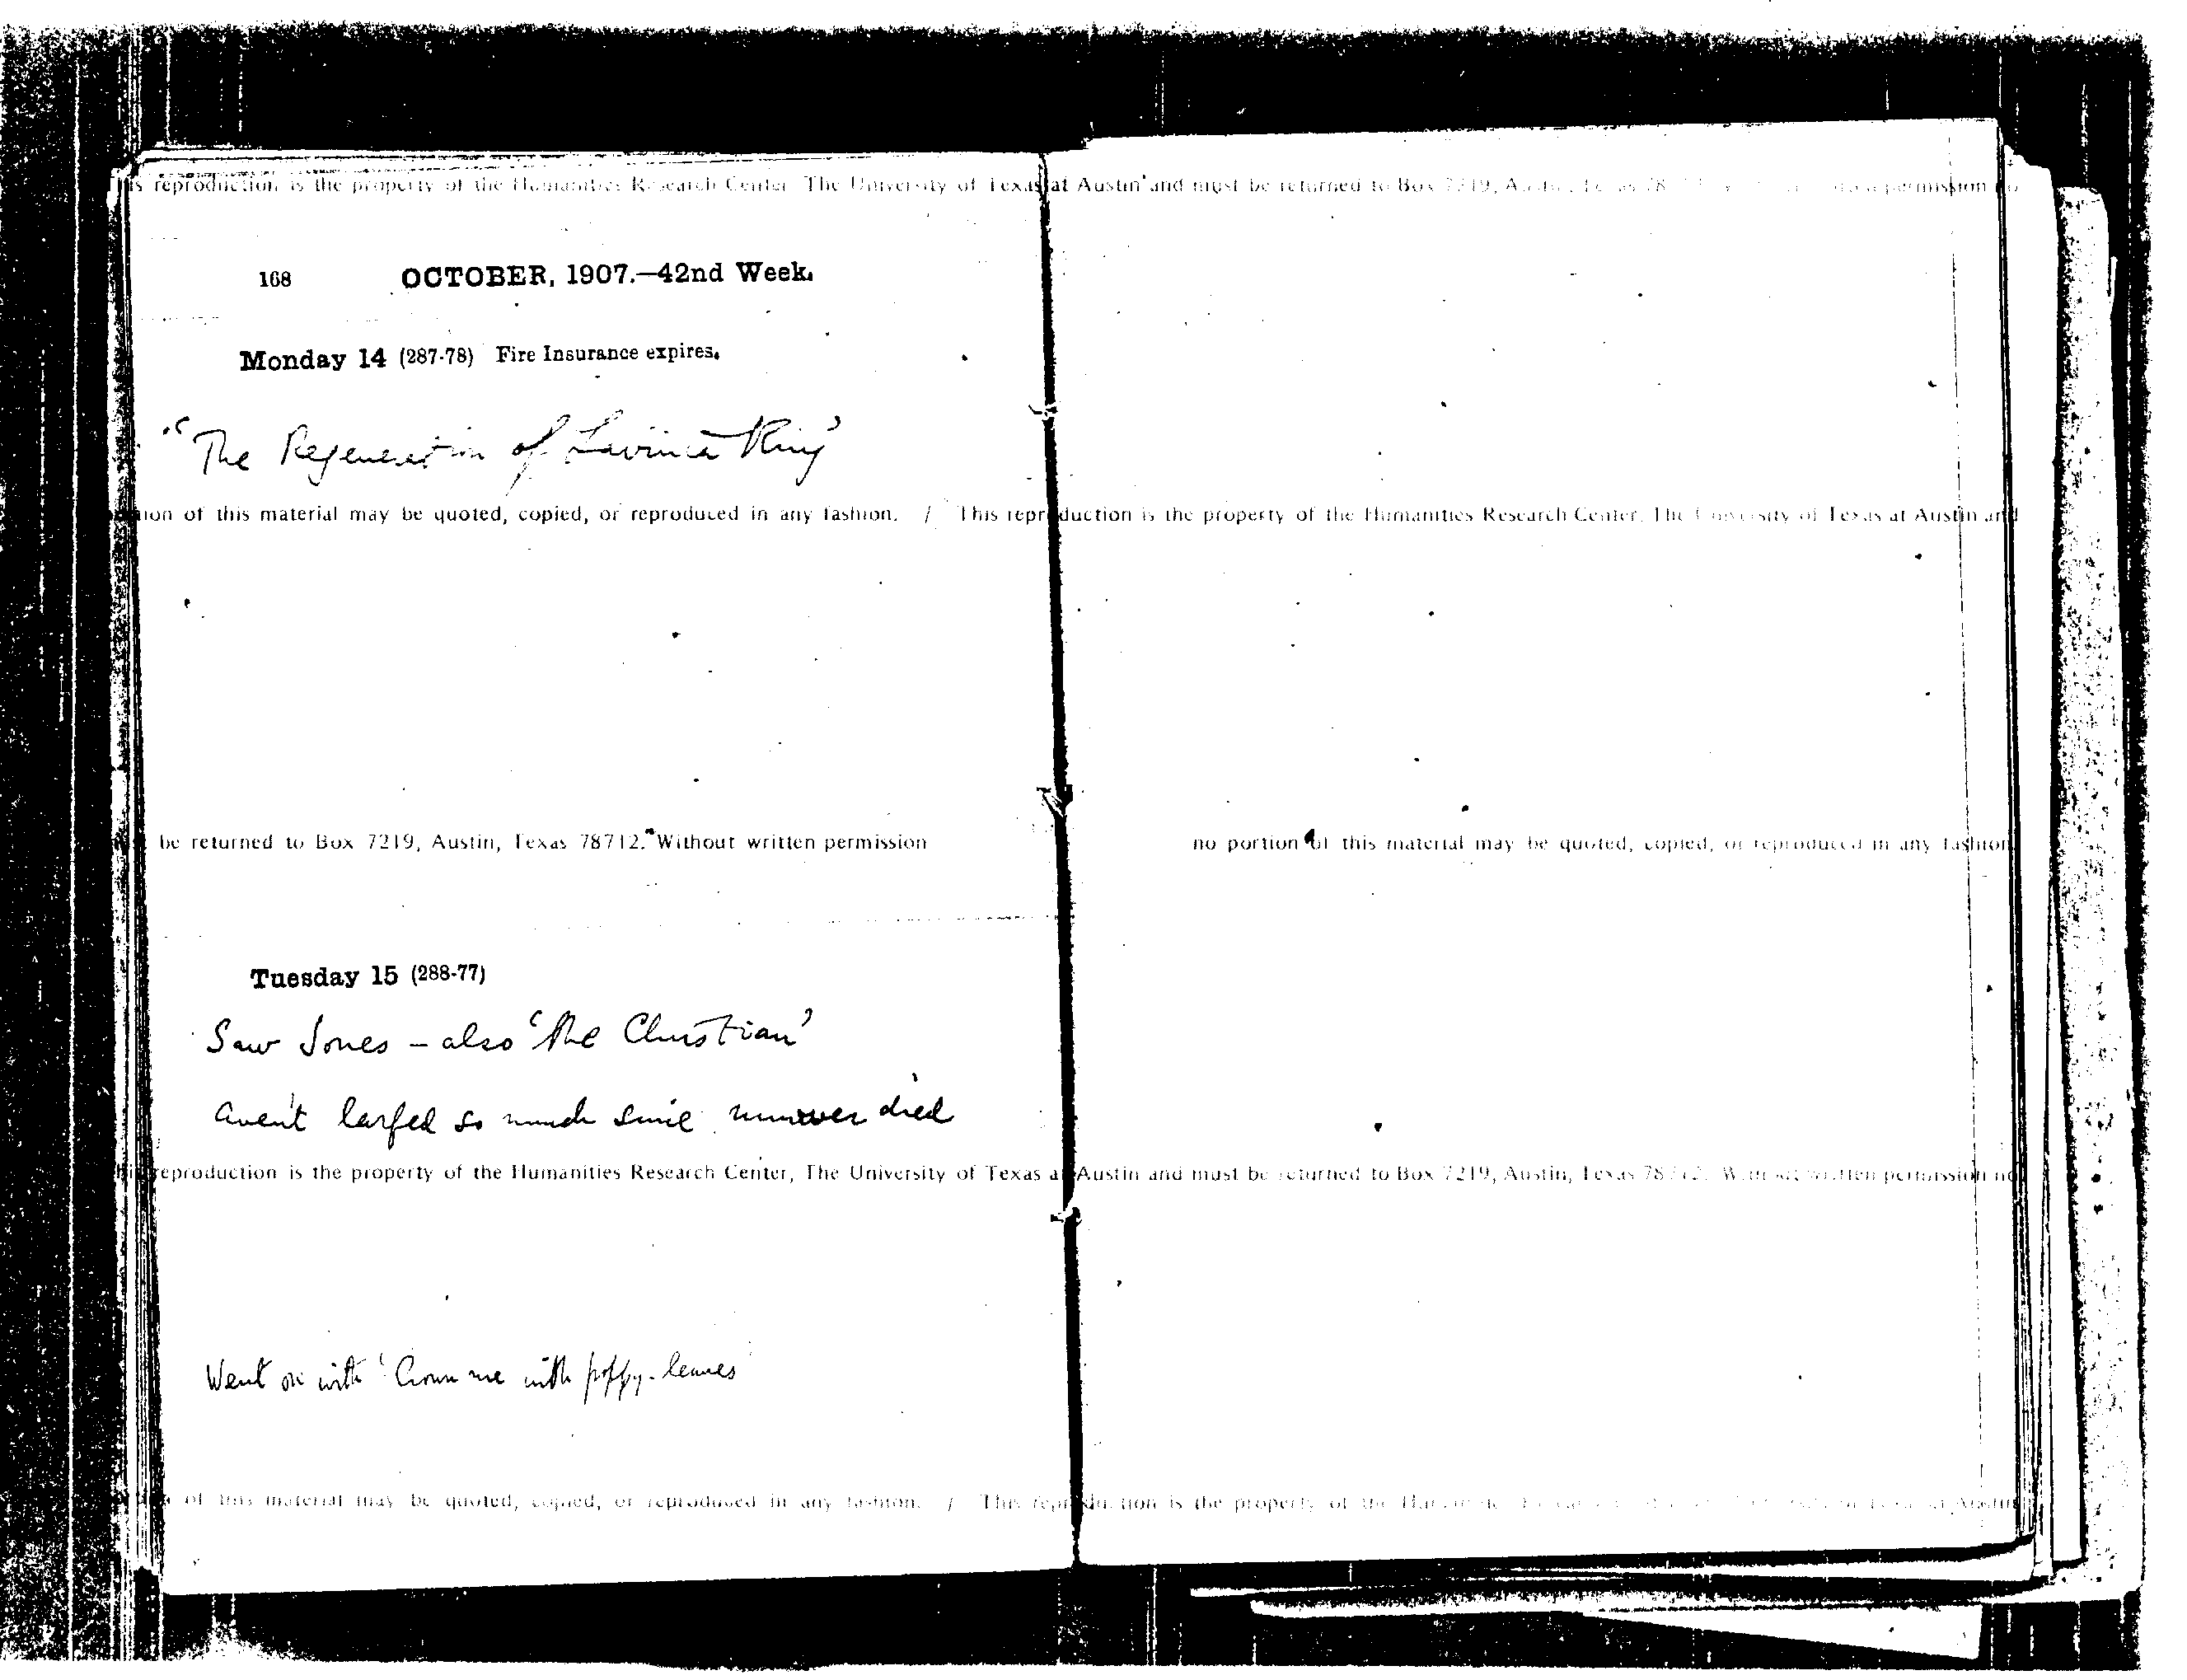 This reproduction is the property of the Humanities Research Center The University of Texas at Austin and must be returned to Box 7219, permission no
168 OCTOBER, 1907.—42nd Week.
Monday 14 (287-78) Fire Insurance expires.
"The Regeneration of Lavinia King'
ion of this material may be quoted, copied, or reproduced in any fashion. / This reproduction is the property of the Humanities Research Center, The University of Texas at Austin and
be returned to Box 7219, Austin, Texas 78712. Without written permission no portion of this material may be quoted, copied, or reproduced in any fashion
Tuesday 15 (288-77)
Saw Jones – also 'The Christian'
Aven't larfed so much since muvver died
reproduction is the property of the Humanities Research Center, The University of Texas at Austin and must be returned to Box 7219, Austin, Texas 78712. Without written permission no
Went on with 'Crown me with poppy-leaves'
of this material may be quoted, copied, or reproduced in any fashion. / This reproduction is the property of the at Austin